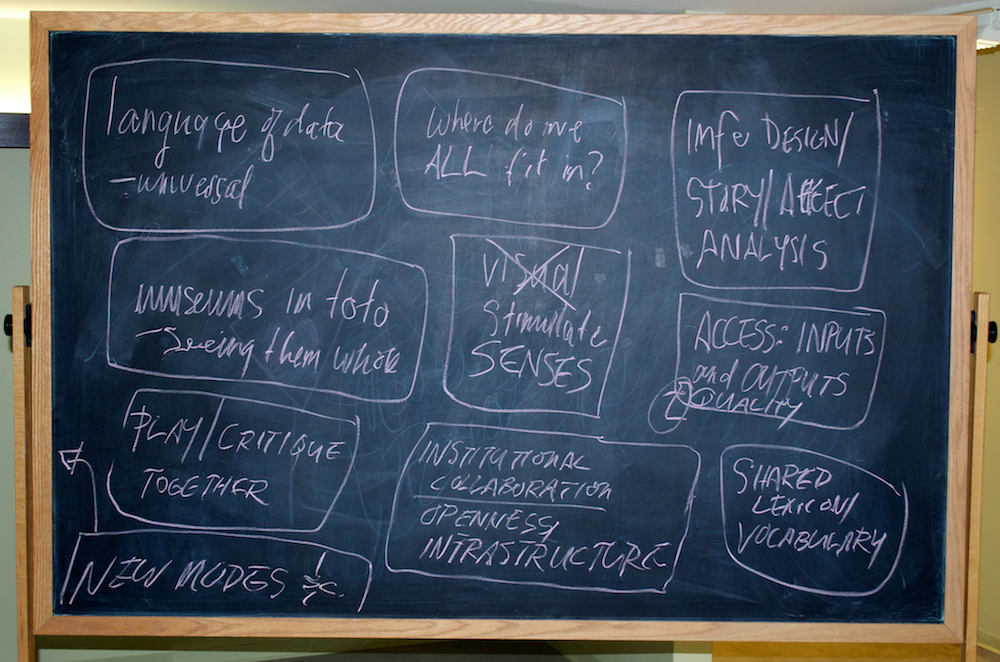 language of data
- universal
Where do we
ALL fit in?
Info DESIGN/
STORY/AFFECT
ANALYSIS
museums in toto
- Seeing them whole
visual
Stimulate
SENSES
ACCESS: INPUTS
and OUTPUTS
QUALITY
PLAY/CRITIQUE
TOGETHER
INSTITUTIONAL
COLLABORATION
OPENNESS/
INFRASTRUCTURE
SHARED
LEXICON/
VOCABULARY
NEW MODES